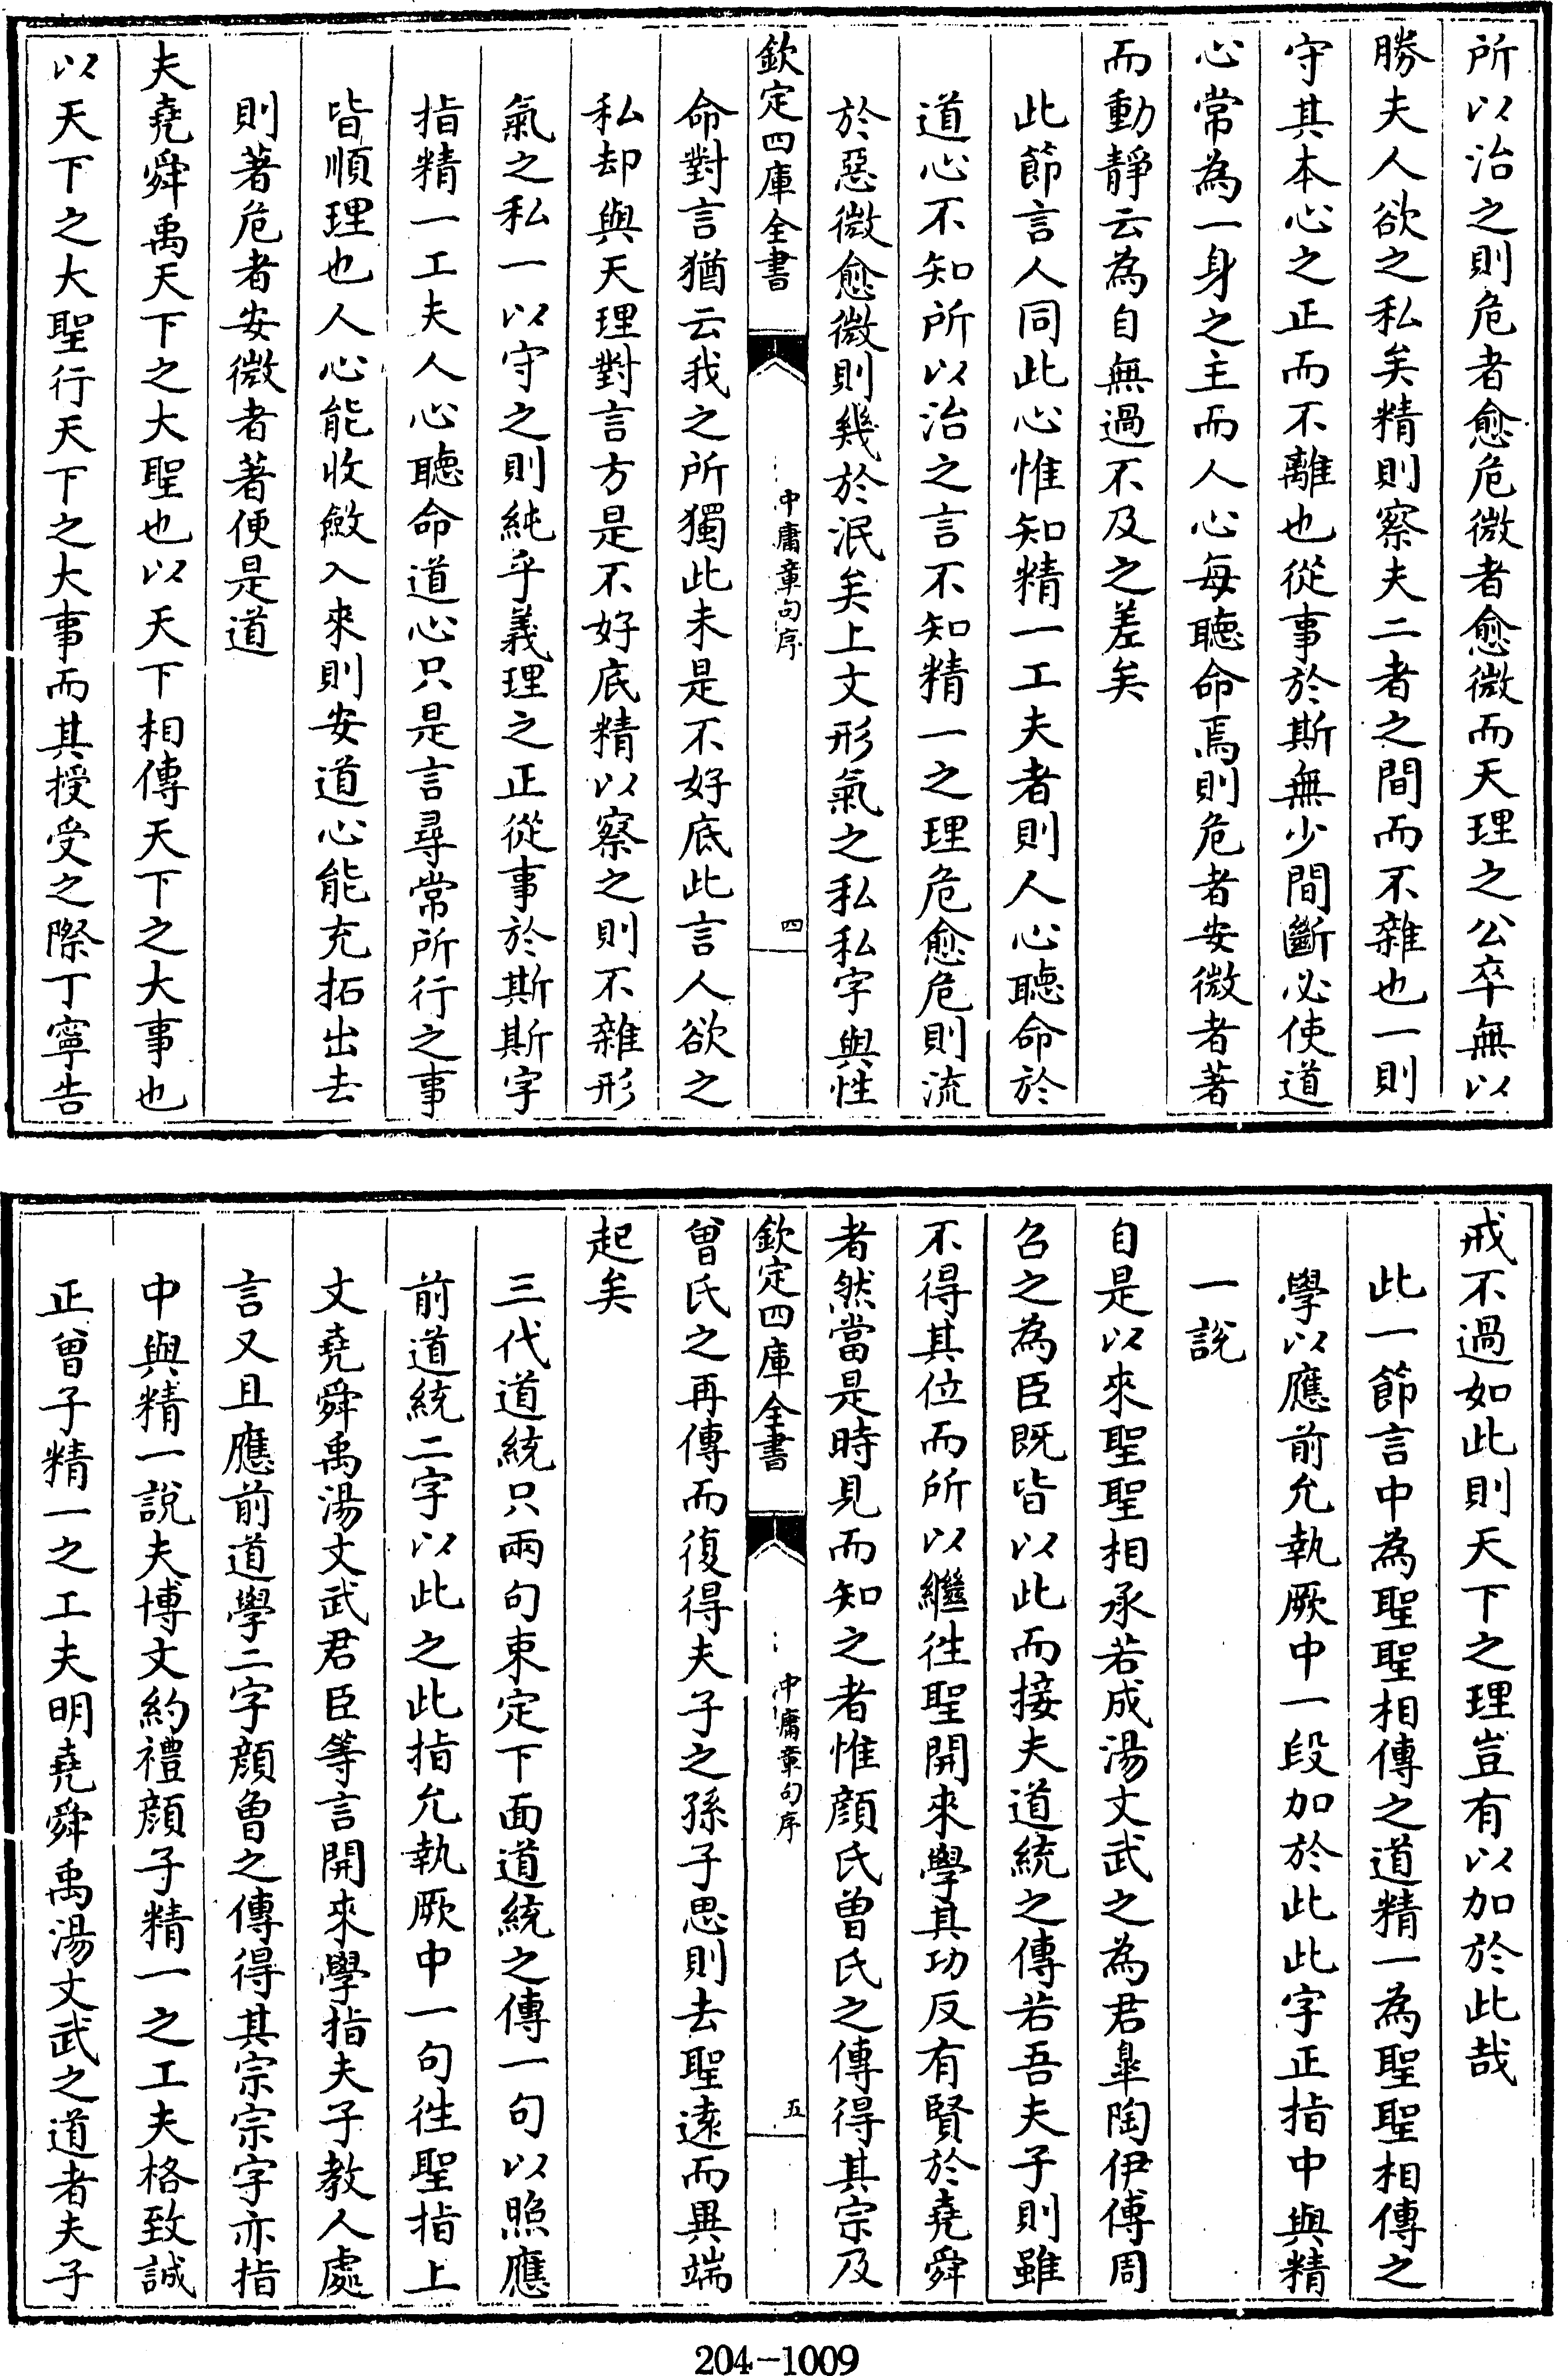 所以治之則危者愈危微者愈微而天理之公卒無以
勝夫人欲之私矣精則察夫二者之間而不雜也一則
守其本心之正而不離也從事於斯無少間斷必使道
心常為一身之主而人心每聽命焉則危者安微者著
而動靜云為自無過不及之差矣
此節言人同此心惟知精一工夫者則人心聽命於
道心不知所以治之言不知精一之理危愈危則流
於惡微愈微則幾於泯矣上文形氣之私私字與性
欽定四庫全書
中庸章句序
四
命對言猶云我之所獨此未是不好底此言人欲之
私却與天理對言方是不好底精以察之則不雜形
氣之私一以守之則純乎義理之正從事於斯斯字
指精一工夫人心聽命道心只是言尋常所行之事
皆順理也人心能收斂入來則安道心能充拓出去
則著危者安微者著便是道
夫堯舜禹天下之大聖也以天下相傳天下之大事也
以天下之大聖行天下之大事而其授受之際丁寧告
戒不過如此則天下之理豈有以加於此哉
此一節言中為聖聖相傳之道精一為聖聖相傳之
學以應前允執厥中一段加於此此字正指中與精
一說
自是以來聖聖相承若成湯文武之為君臯陶伊傅周
召之為臣既皆以此而接夫道統之傳若吾夫子則雖
不得其位而所以繼往聖開來學其功反有賢於堯舜
者然當是時見而知之者惟顔氏曾氏之傳得其宗及
欽定四庫全書
中庸章句序
五
曾氏之再傳而復得夫子之孫子思則去聖遠而異端
起矣
三代道統只兩句束定下面道統之傳一句以照應
前道統二字以此之此指允執厥中一句往聖指上
文堯舜禹湯文武君臣等言開來學指夫子教人處
言又且應前道學二字顔曾之傳得其宗宗字亦指
中與精一說夫博文約禮顔子精一之工夫格致誠
正曾子精一之工夫明堯舜禹湯文武之道者夫子
204-1009